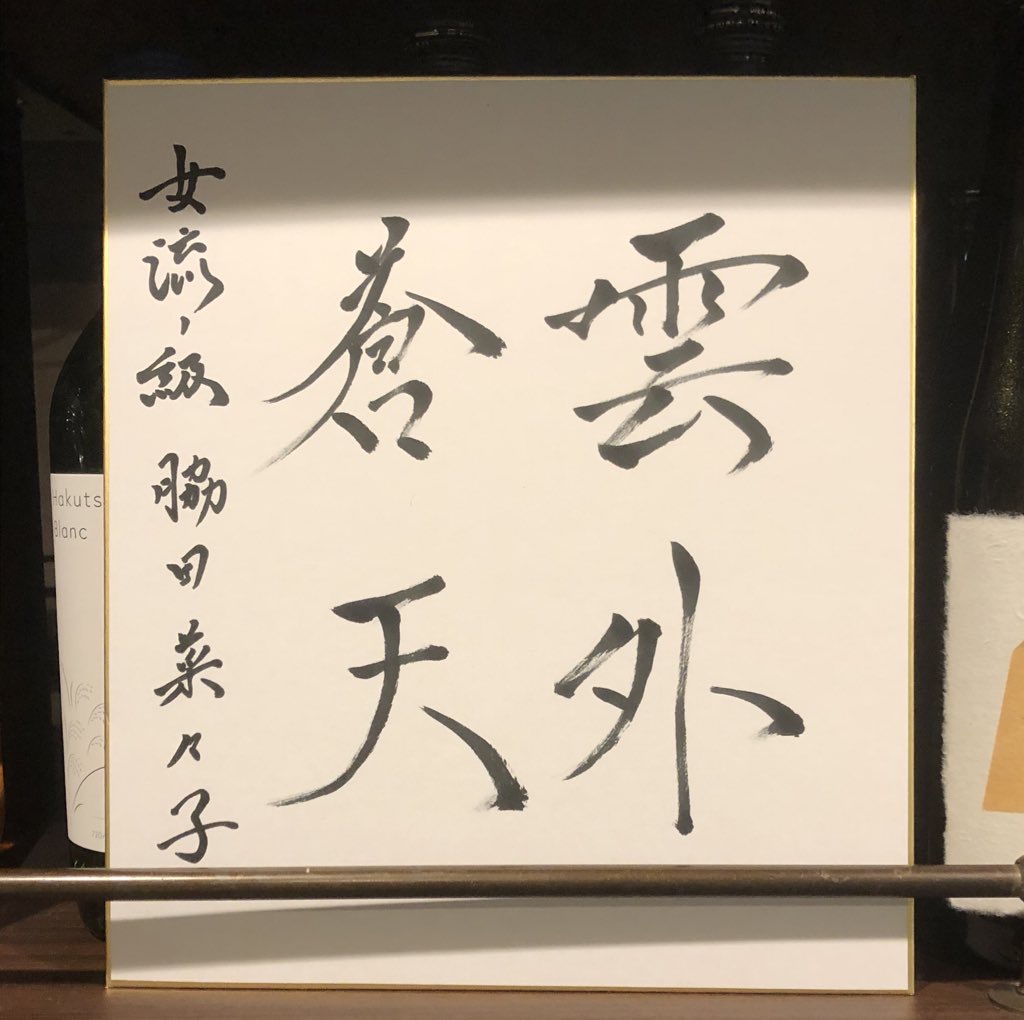 雲外
蒼天
女流1級 脇田菜々子
Hakuts
Blanc